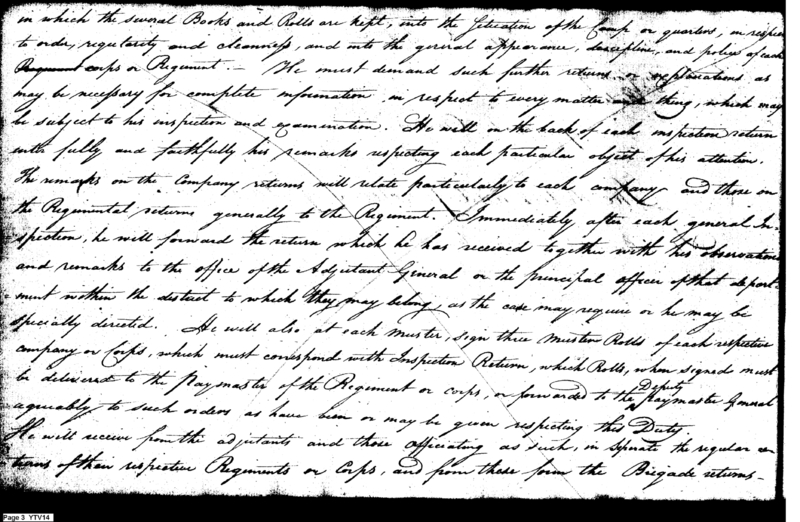 in which the several Books and Rolls are kept, into the Situation of the Camp or quarters, in respect
to order, regularity and cleanness, and into the general appearance, discipline, and police of each
corps or Regiment. — He must demand such further returns or explanations as
may be necessary for complete information in respect to every matter and thing, which may
be subject to his inspection and examination. He will on the back of each inspection return
enter fully and faithfully his remarks respecting each particular object of his attention.
The remarks on the Company returns will relate particularly to each company and those on
the Regimental returns generally to the Regiment. Immediately after each general In-
spection, he will forward the return which he has received together with his observations
and remarks to the office of the Adjutant General or the principal officer of that depart-
ment within the district to which they may belong, as the case may require or he may be
specially directed. He will also at each Muster, sign three Muster Rolls of each respective
company or Corps, which must correspond with Inspection Return, which Rolls, when signed must
be delivered to the Paymaster of the Regiment or corps, or forwarded to the Deputy Paymaster General
agreeably to such orders as have been or may be given respecting this Duty.
He will receive from the adjutants and those officiating as such, in the regular
of their respective Regiments or Corps, and from these form the Brigade returns –
Page 3 YTV14